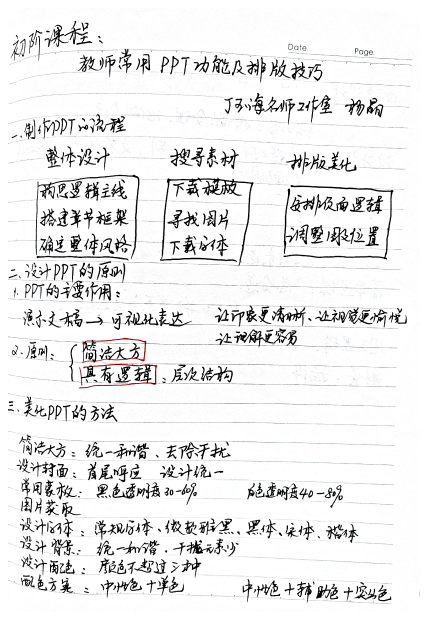 初阶课程：
Date.
Page.
教师常用PPT功能及排版技巧
名师工作室 杨晶
一、制作PPT的流程
整体设计 搜寻素材 排版美化
构思逻辑主线 下载模板 安排页面逻辑
搭建章节框架 寻找图片 调整图段位置
确定整体风格 下载字体
二、设计PPT的原则
1、PPT的主要作用：
演示文稿→可视化表达 让印象更清晰、让视觉更愉悦
让理解更容易
2.原则： 简洁大方
具有逻辑：层次结构
三、美化PPT的方法
简洁大方：统一和谐、去除干扰
设计封面：首尾呼应 设计统一
常用蒙板：黑色透明度30-60% 白色透明度40-80%
图片获取
设计字体：常规字体、微软雅黑、黑体、宋体、楷体
设计背景：统一和谐、干扰元素少
设计配色：颜色不超过三种
配色方案：中性色+单色 中性色+辅助色+突出色